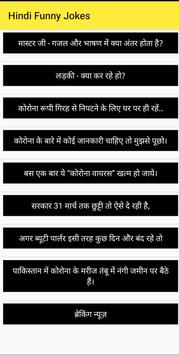 Hindi Funny Jokes
मास्टर जी - गजल और भाषण में क्या अंतर होता है?
लड़की - क्या कर रहे हो?
कोरोना रूपी गिरह से निपटने के लिए घर पर ही रहें..
कोरोना के बारे में कोई जानकारी चाहिए तो मुझसे पूछो।
बस एक बार ये "कोरोना वायरस" खत्म हो जाये।
सरकार 31 मार्च तक छुट्टी तो ऐसे दे रही है,
अगर ब्यूटी पार्लर इसी तरह कुछ दिन और बंद रहे तो
पाकिस्तान में कोरोना के मरीज तंबू में नंगी जमीन पर बैठे
हैं।
ब्रेकिंग न्यूज़